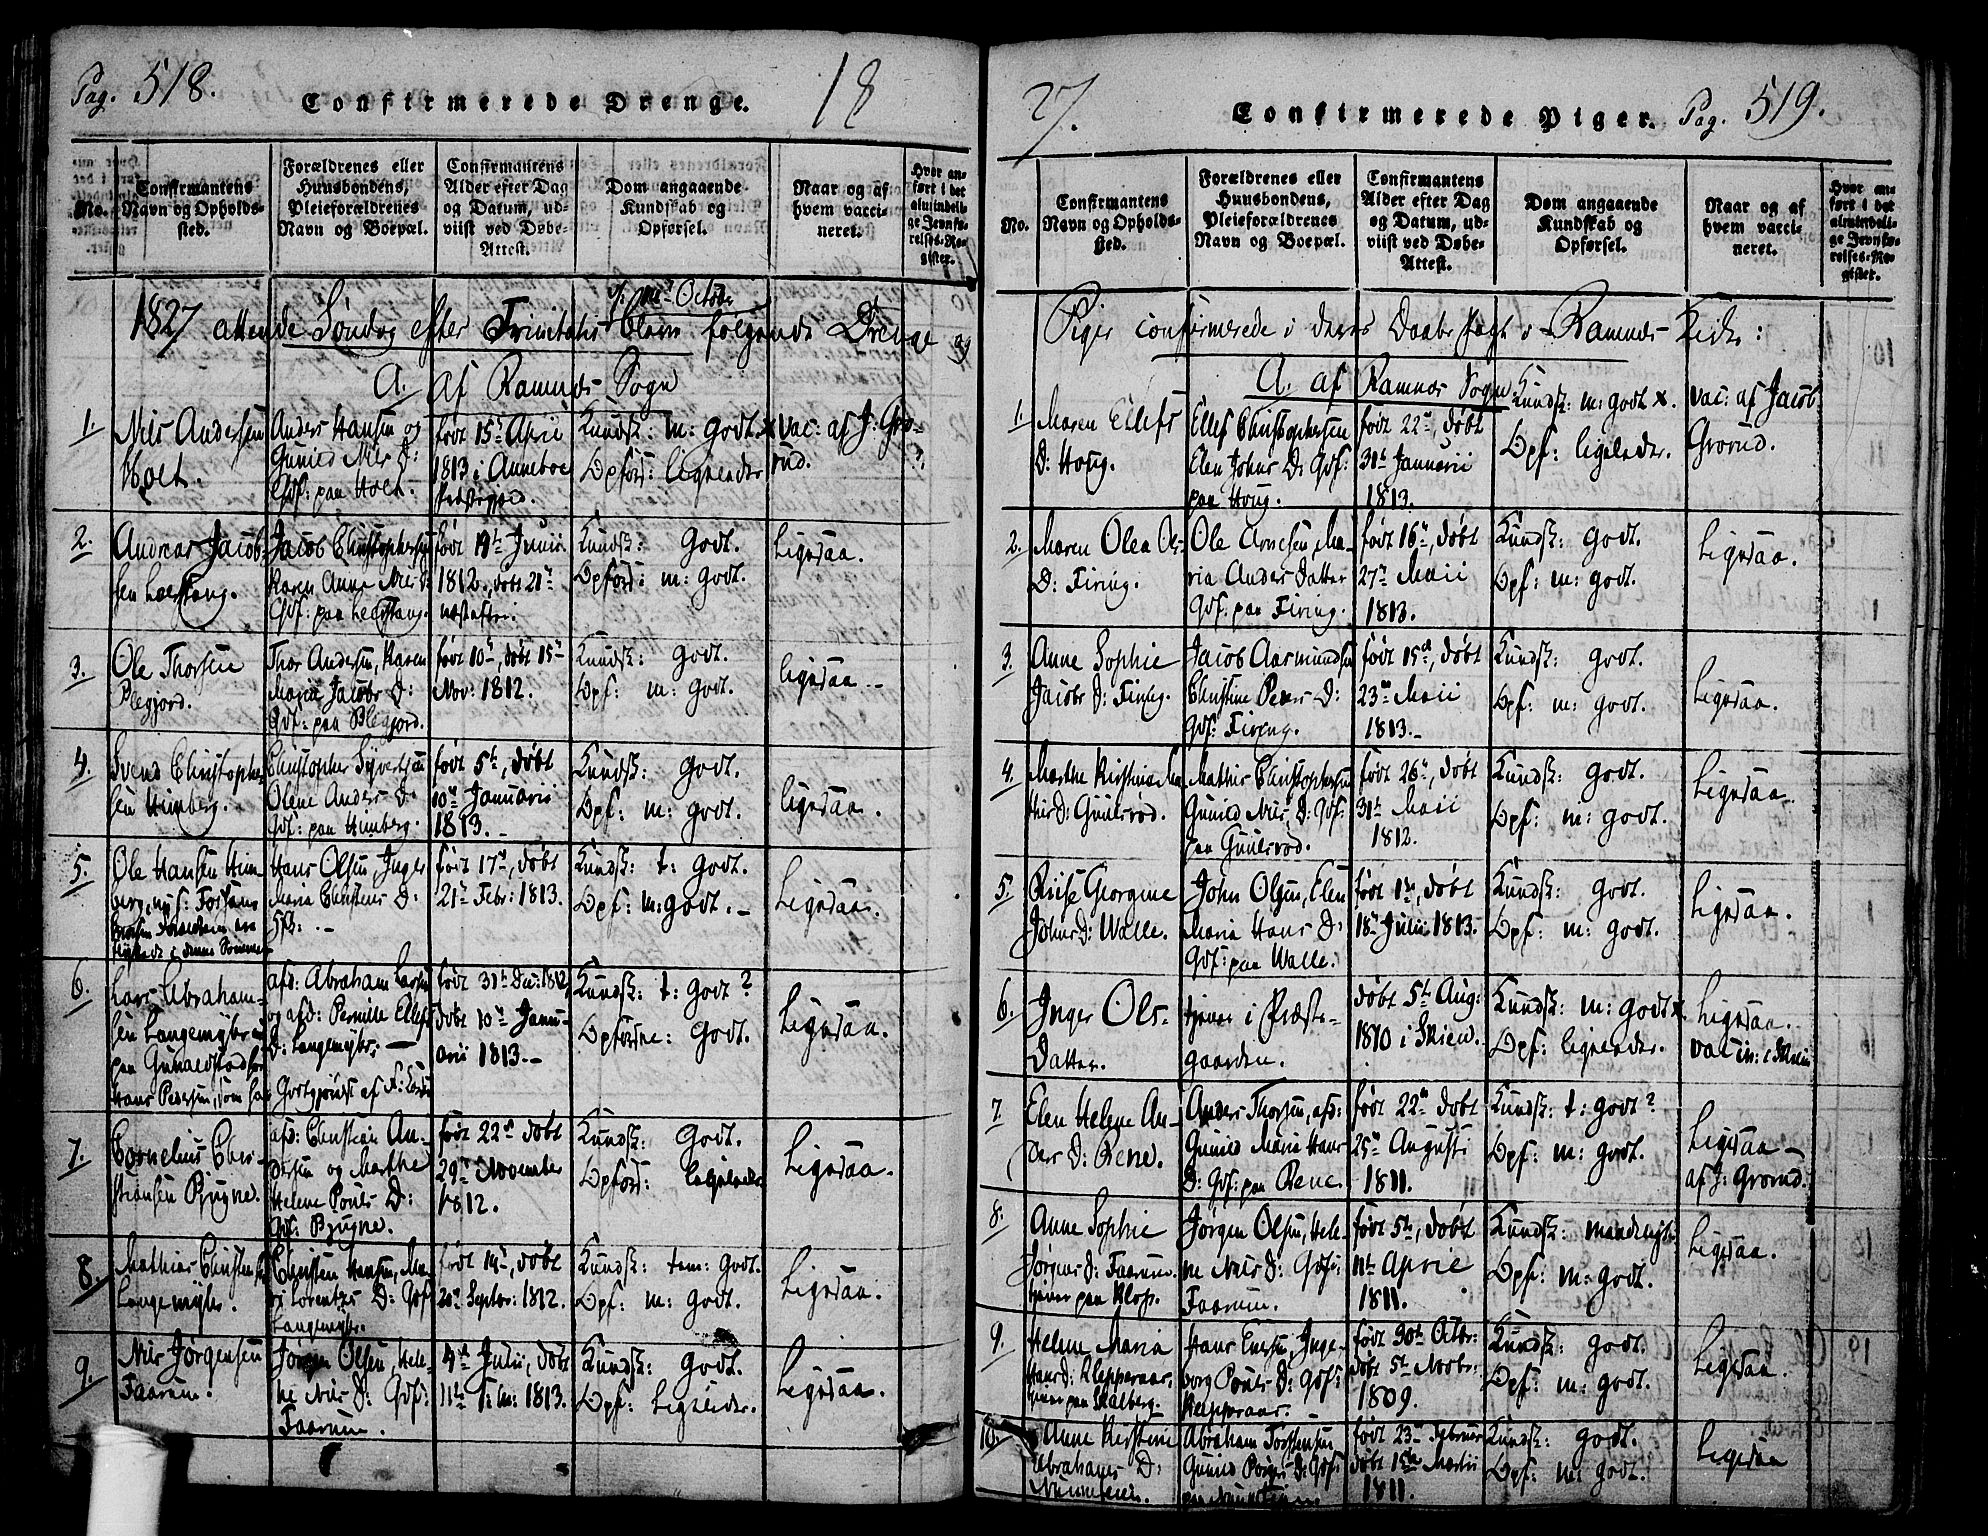 Pag. 518.
Confirmerede Drenge.
18
No.
Confirmantens Navn og Opholdssted.
Forældrenes eller Huusbondens, Pleieforældrenes Navn og Boepæl.
Confirmantens Alder efter Dag og Datum, udviist ved Døbe-Attest.
Dom angaaende Kundskab og Opførsel.
Naar og af hvem vaccineret.
Hvor anført i det almindelige Jevnførelses-Register.
October
1827 attende Søndag efter Trinitatis følgende Drenge
A. af Ramnæs Sogn
1.
Niels Andersen
Holt.
Anders Hansen og
Gunild Niels D:
Gdf: paa Holt.
født 15de April
1813 i
Kundsk: m: godt x
Opførs: ligeledes
Vac: af J: Gro-
rud.
2.
Andreas Jacob-
sen
Jacob Christophersen
Karen Anne Niels D:
Gdf: paa
født 19de Junii
1812, døbt 21de
næstefter.
Kundsk: Godt.
Opførs: m: Godt.
Ligesaa.
3.
Ole Thorsen
Plegjord.
Thor Andersen, Karen
Maria Jacobs D:
Gdf: paa Blegjord.
født 10de, døbt 15de
Nov: 1812.
Kundsk: Godt.
Opf: m: Godt.
Ligesaa.
4.
Svend Christopher-
sen Himberg.
Christopher Syvertsen
Olene Anders D:
Gdf: paa Himberg.
født 5te, døbt
10de Januarii
1813.
Kundsk: Godt.
Opf: m: godt.
Ligesaa.
5.
Ole Hansen Him-
berg,
Hans Olsen, Inger
Maria Christens D:
født 17de, døbt
21de Febr: 1813.
Kundsk: t: Godt.
Opf: m: godt.
Ligesaa.
6.
Lars Abraham-
sen Langemyhr
paa
Hans Pedersen, som
afd: Abraham Larsen
og afd: Pernille Ellefs
D: Langemyhr.
født 31te Dec: 1812,
døbt 10de Janu-
arii 1813.
Kundsk: t: Godt?
Opførsel: Godt.
Ligesaa.
7.
Cornelius Chri-
stiansen Bjugne.
afd: Christian An-
dersen og Marthe
Helene Pouls D:
Gdf: Bjugne.
født 22de døbt
29de November
1812.
Kundsk: Godt.
Opførs: Ligeledes
Ligesaa.
8.
Mathias Christensen
Langemyhr.
Christen Hansen, Ma-
ri Lorentzes D: Gdf:
Langemyhr.
født 14de, døbt
20de Septbr: 1812.
Kundsk: tem: Godt.
Opf: m: Godt.
Ligesaa.
9.
Niels Jørgensen
Faarum.
Jørgen Olsen, Hele-
ne Niels D: Gdf:
Faarum.
4de Julii, døbt
11te 1813.
Kundsk: Godt.
Opf: Ligeledes.
Ligesaa.
27.
Confirmerede Piger.
Pag. 519.
No.
Confirmantens Navn og Opholdssted.
Forældrenes eller Huusbondens, Pleieforældrenes Navn og Boepæl.
Confirmantens Alder efter Dag og Datum, udviist ved Døbe-Attest.
Dom angaaende Kundskab og Opførsel.
Naar og af hvem vaccineret.
Hvor anført i det almindelige Jevnførelses-Register.
Piger confirmerede i deres Daabs Pagt i Ramnæs Kirke:
A. af Ramnæs Sogn
1.
Maren Ellefs
D: Houg.
Ellef Christophersen
Elen Johns D: Gdf:
paa Houg.
født 22de, døbt
31te Januarii
1813.
Kundsk: m: godt x.
Opf: ligeledes.
Vac: af Jacob
Grorud.
2.
Maren Olea Ols-
D: Firing.
Ole Arnesen, Ma-
ria Anders Datter
Gdf: paa Firing.
født 16de, døbt
27de Maii
1813.
Kundsk: Godt.
Opf: m: godt.
Ligesaa.
3.
Anne Sophie
Jacobs D: Firing.
Jacob Aarmundsen
Christine Peders D:
Gdf: Firing.
født 15de, døbt
23de Maii
1813.
Kundsk: godt.
Opf: m: godt.
Ligesaa.
4.
Marthe Kirstine Ma-
this D: Guulsrod.
Mathis Christophersen
Gunild Niels D: Gdf:
paa Guulsrod.
født 26de, døbt
31te Maii
1812.
Kundsk: godt.
Opf: m: godt.
Ligesaa.
5.
Georgine
Johns D: Walle.
John Olsen, Elen
Maria Hans D:
Gdf: paa Walle.
født 1ste, døbt
18de Julii 1813.
Kundsk: godt.
Opf: m: godt.
Ligesaa.
6.
Inger Ols-
Datter.
tjener i Præste-
gaarden.
døbt 5te Aug:
1810 i Skien.
Kundsk: m: godt x.
Opf: ligeledes.
Ligesaa.
vaccin: i Skien
7
Elen Helene An-
ders D: Rene.
Anders Thorsen, afd:
Gunild Maria Hans
D: Gdf: paa Rene.
født 22de døbt
25de Augusti
1811.
Kundsk: t: godt?
Opf: m: godt.
Ligesaa
af J: Grorud.
8.
Anne Sophie
Jørgens D: Faarum.
tjener paa Klop.
Jørgen Olsen, Hele-
ne Niels D: Gdf:
Faarum.
født 5te, døbt
11te April
1811.
Kundsk: maadeligt.
Opf: m: godt.
Ligesaa.
9.
Helene Maria
Hans D: Klopperaas,
tjener paa Skalberg.
Hans Enersen, Inge-
borg Pouls D: Gdf:
Klopperaas.
født 30te Octbr:
døbt 5te Novbr:
1809.
Kundsk: godt.
Opf: m: godt.
Ligesaa.
10.
Anne Kirstine
Abrahams D:
Abraham Torstensen
Gunild D: Gdf:
født 23de Februar
døbt Martii
1811.
Kundsk: godt.
Opf: m: godt.
Ligesaa